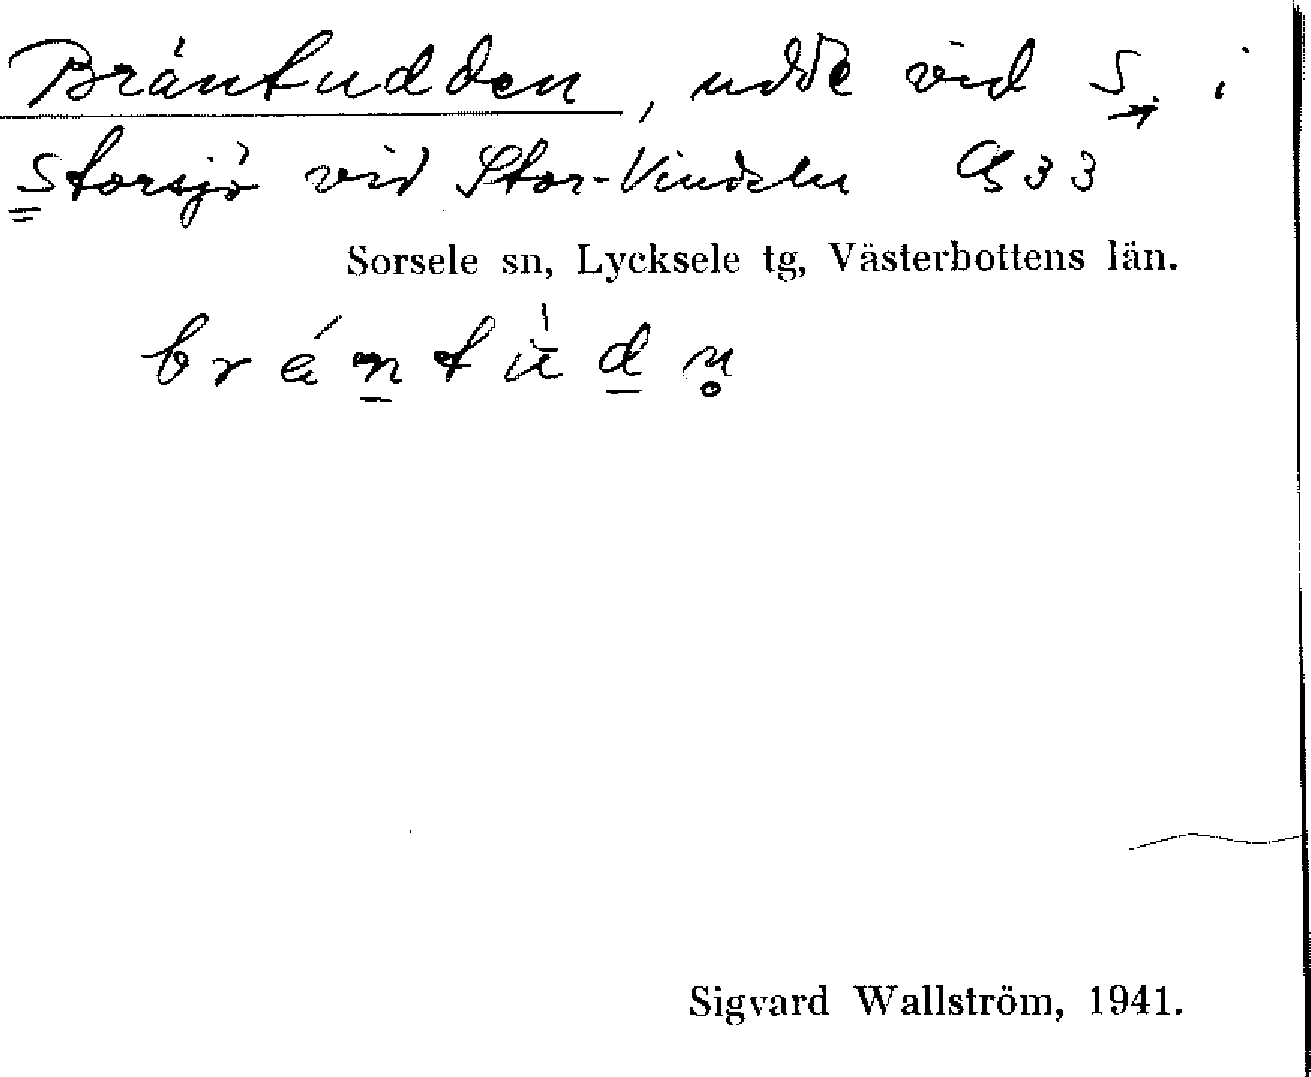 Bräntudden, udde vid S. i
Storsjö vid Stor-Vindeln G 33
Sorsele sn, Lycksele tg, Västerbottens län.
Sigvard Wallström, 1941.